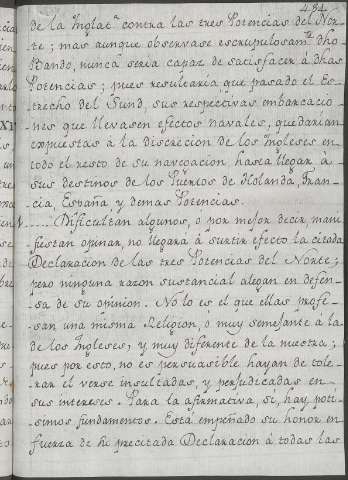 484
de la Inglatª contra las tres Potencias del Nor-
te; mas aunque observase escrupulosamte dho
Vando, nunca seria capaz de satisfacer á dhas
Potencias; pues resultaria que pasado el Es-
trecho del Sund, sus respectivas embarcacio-
nes que llevasen efectos navales, quedarian
expuestas á la discrecion de los Ingleses en
todo el resto de su navegacion hasta llegar á
sus destinos de los Puertos de Holanda, Fran-
cia, España y demas Potencias.
Dificultan algunos, ó por mejor decir mani-
fiestan opinar, no llegará á surtir efecto la citada
Declaracion de las tres Potencias del Norte;
pero ninguna razon sustancial alegan en defen-
sa de su opinion. No lo es el que ellas profe-
san una misma Religion, ó muy semejante á la
de los Ingleses, y muy diferente de la nuestra;
pues por esto, no es persuasible hayan de tole-
rar el verse insultadas, y perjudicadas en
sus intereses. Para la afirmativa, si, hay poti-
simos fundamentos. Está empeñado su honor en
fuerza de la precitada Declaracion á todas las